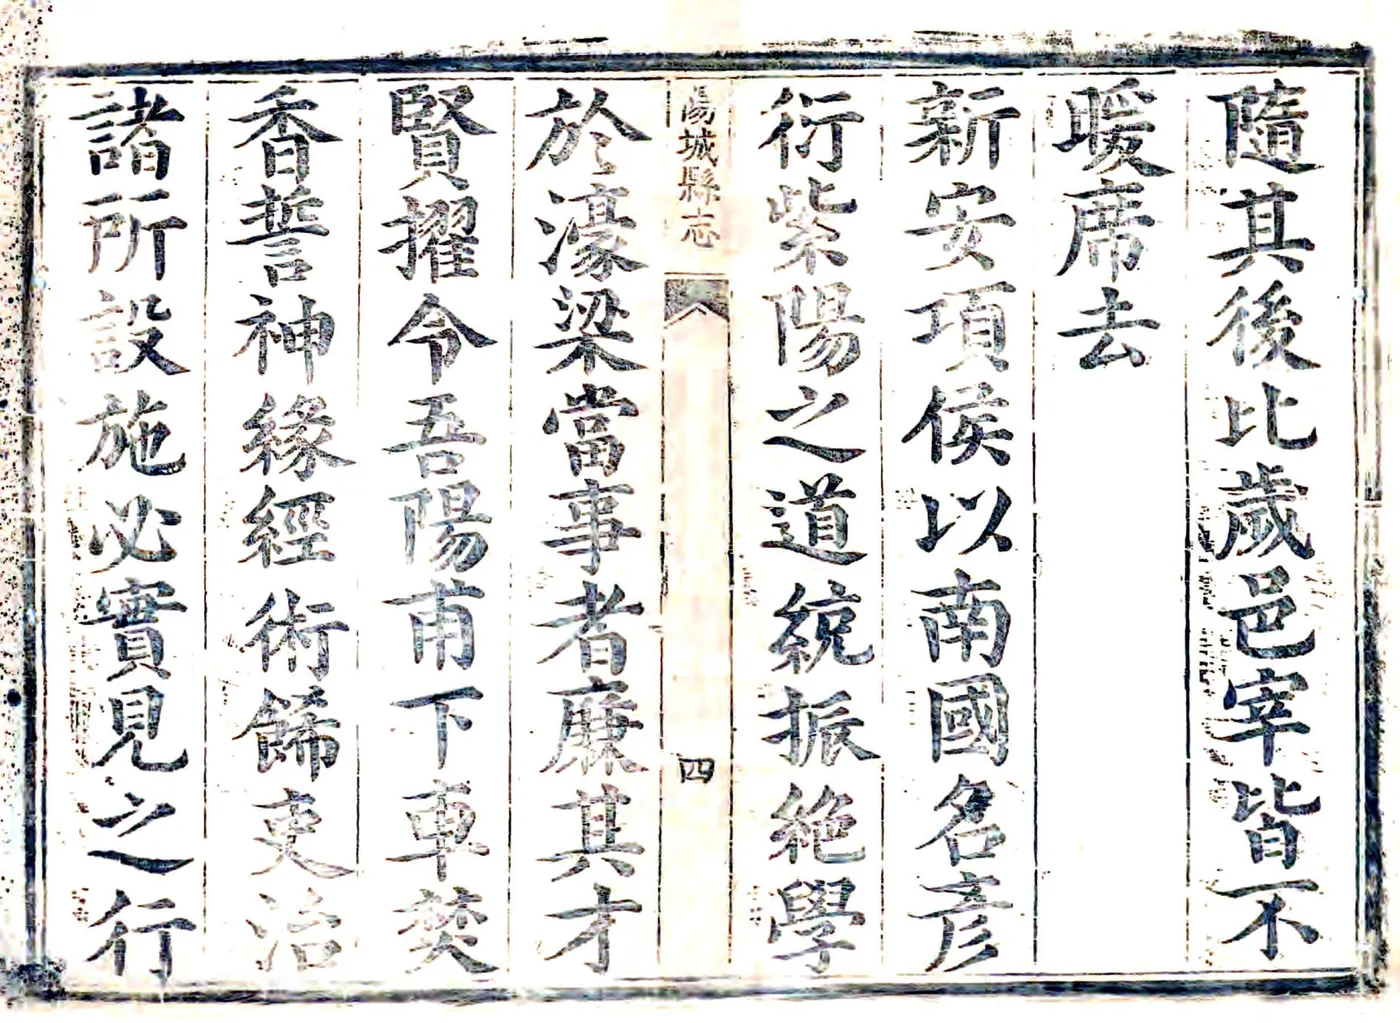 隨其後比歲邑宰皆不
暖席去
新安項侯以南國名彦
衍紫陽之道統振絶學
陽城縣志
四
於濠梁當事者廉其才
賢擢令吾陽甫下車焚
香誓神緣經術飾吏治
諸所設施必實見之行